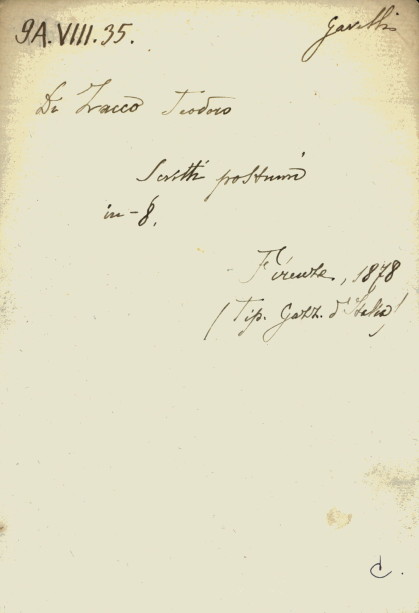 9A.VIII.35.
Gavelli
Di Zacco Teodoro
Scritti postumi
in-8.
Firenze, 1878
(Tip. Gazz. d'Italia)
C.